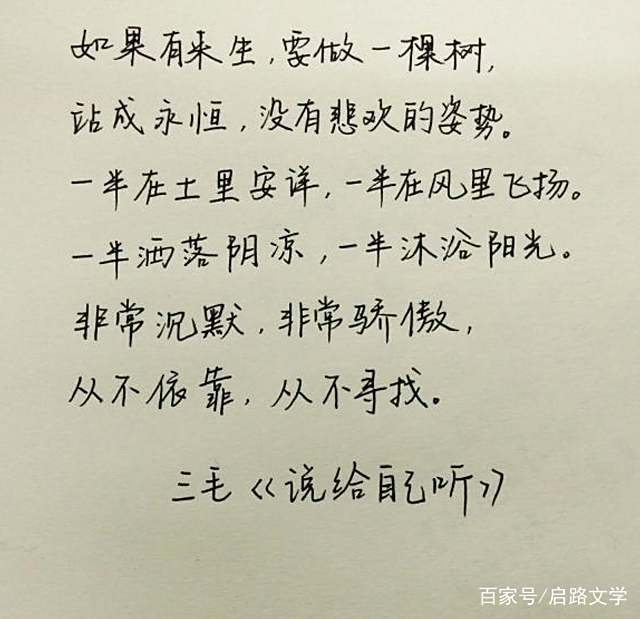 如果有来生,要做一棵树,
站成永恒,没有悲欢的姿势。
一半在土里安详,一半在风里飞扬。
一半洒落阴凉,一半沐浴阳光。
非常沉默,非常骄傲,
从不依靠,从不寻找。
三毛《说给自己听》
百家号/启路文学